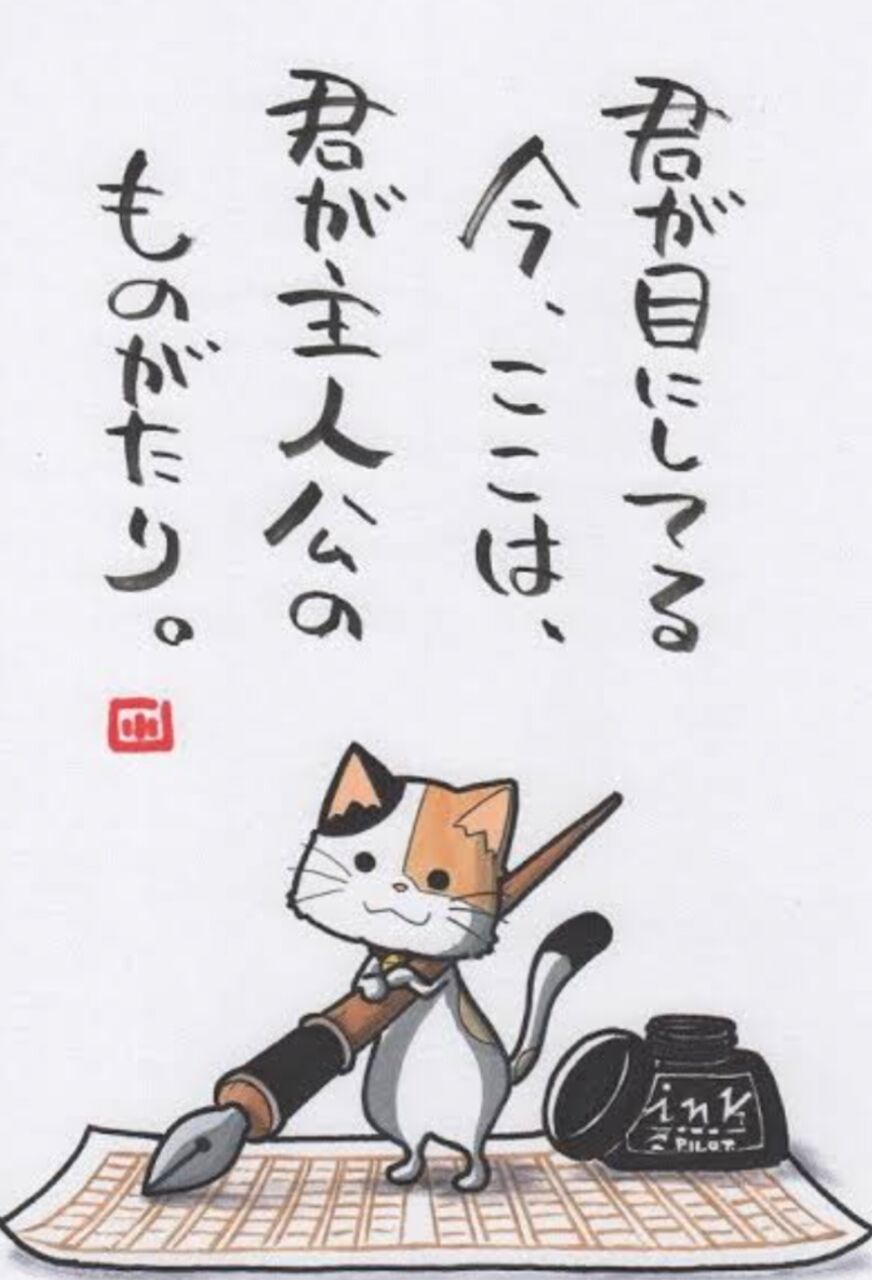 君が目にしてる
今、ここは、
君が主人公の
ものがたり。
ink
PILOT